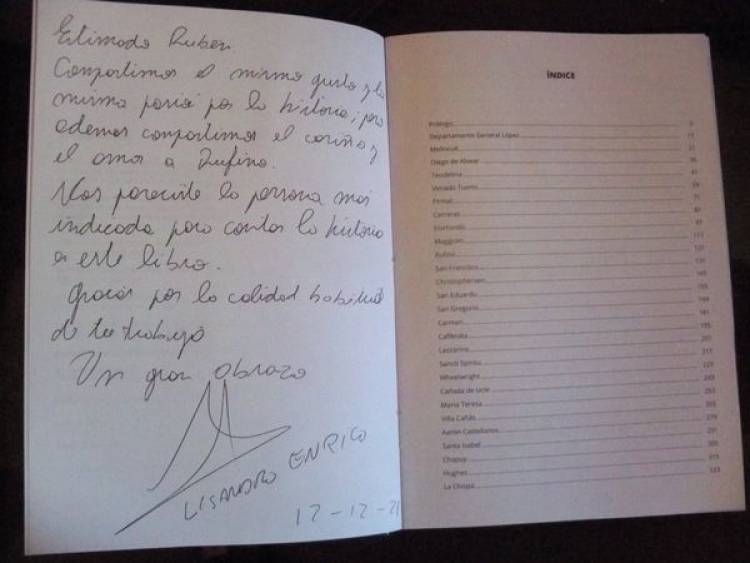 Estimado Ruben.
Compartimos el mismo gusto y la
misma pasió por la historia, pero
ademas compartimos el cariño y
el amor a Rufino.
Vos pareciste la persona mas
indicada para contar la historia
a este libro.
Gracias por la calidad habitual
de tu trabajo
Un gran abrazo
LISANDRO ENRICO
12-12-21
ÍNDICE
Prólogo
Departamento General López
Melincué
Diego de Alvear
Teodelina
Venado Tuerto
Firmat
Carreras
Elortondo
Maggiolo
Rufino
San Francisco
Christophersen
San Eduardo
San Gregorio
Carmen
Cafferata
Lazzarino
Sancti Spiritu
Wheelwright
Cañada de Ucle
María Teresa
Villa Cañás
Aarón Castellanos
Santa Isabel
Chapuy
Hughes
La Chispa